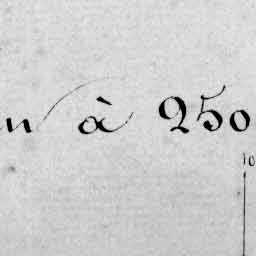 n à 250
10